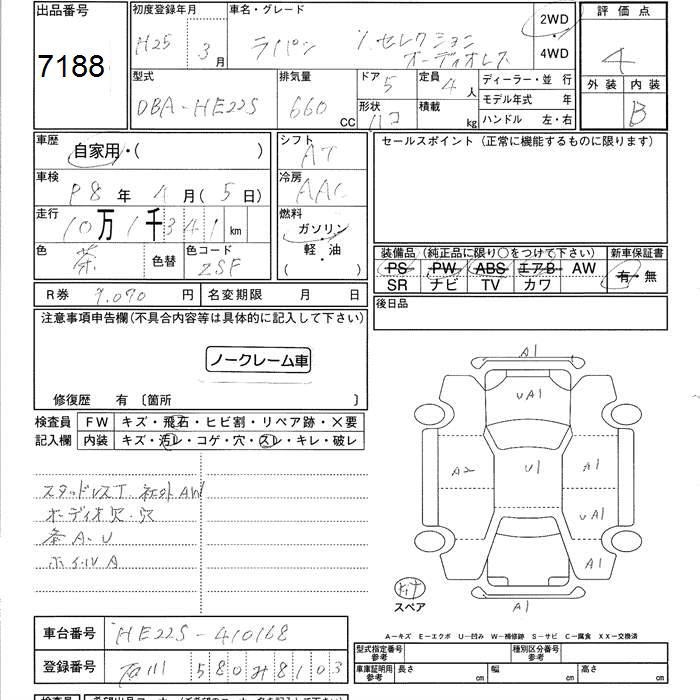 出品番号
7188
初度登録年月
H25 3月
車名・グレード
ラパン X セレクション
オーディオレス
2WD
4WD
評価点
4
外装 内装
B
型式
DBA-HE22S
排気量
660 CC
ドア 5
形状 ハコ
定員 4人
積載 kg
ディーラー・並 行
モデル年式 年
ハンドル 左・右
車歴
自家用・( )
車検
R8年 4月(5日)
走行
10万1千341km
色
茶
色替
色コード
ZSF
シフト
AT
冷房
AAC
燃料
ガソリン
軽・油
( )
セールスポイント(正常に機能するものに限ります)
装備品(純正品に限り○をつけて下さい)
新車保証書
PS PW ABS エアB AW
有・無
SR ナビ TV カワ
R券 9,070円
名変期限 月 日
後日品
注意事項申告欄(不具合内容等は具体的に記入して下さい)
ノークレーム車
修復歴 有〔箇所 〕
検査員
記入欄
FW キズ・飛石・ヒビ割・リペア跡・×要
内装 キズ・汚レ・コゲ・穴・スレ・キレ・破レ
スタッドレスT 社外AW
オーディオ欠・穴
条A・U
ホイルA
A1
UA1
A2
U1
A1
UA1
A1
A1
キット
スペア
A-キズ E-エクボ U-凹み W-補修跡 S-サビ C-腐食 XX-交換済
車台番号
HE22S-410168
登録番号
石川 580 み 8103
型式指定番号
参考
種別区分番号
参考
車庫証明用
参考
長さ cm
幅 cm
高さ cm